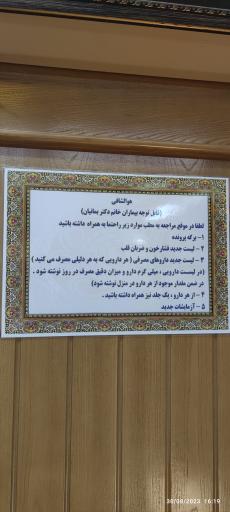 هوالشافی
(قابل توجه بیماران خانم دکتر یمانیان)
لطفا در موقع مراجعه به مطب موارد زیر راحتما به همراه داشته باشید
۱- برگه پرونده
۲- لیست جدید فشارخون و ضربان قلب
۳- لیست جدید داروهای مصرفی ( هر دارویی که به هر دلیلی مصرف می کنید )
(در لیست دارویی ، میلی گرم دارو و میزان دقیق مصرف در روز نوشته شود .
در ضمن مقدار موجود از هر دارو در منزل نوشته شود)
۴- از هر دارو ، یک جلد نیز همراه داشته باشید .
۵- آزمایشات جدید
30/08/2023 16:19